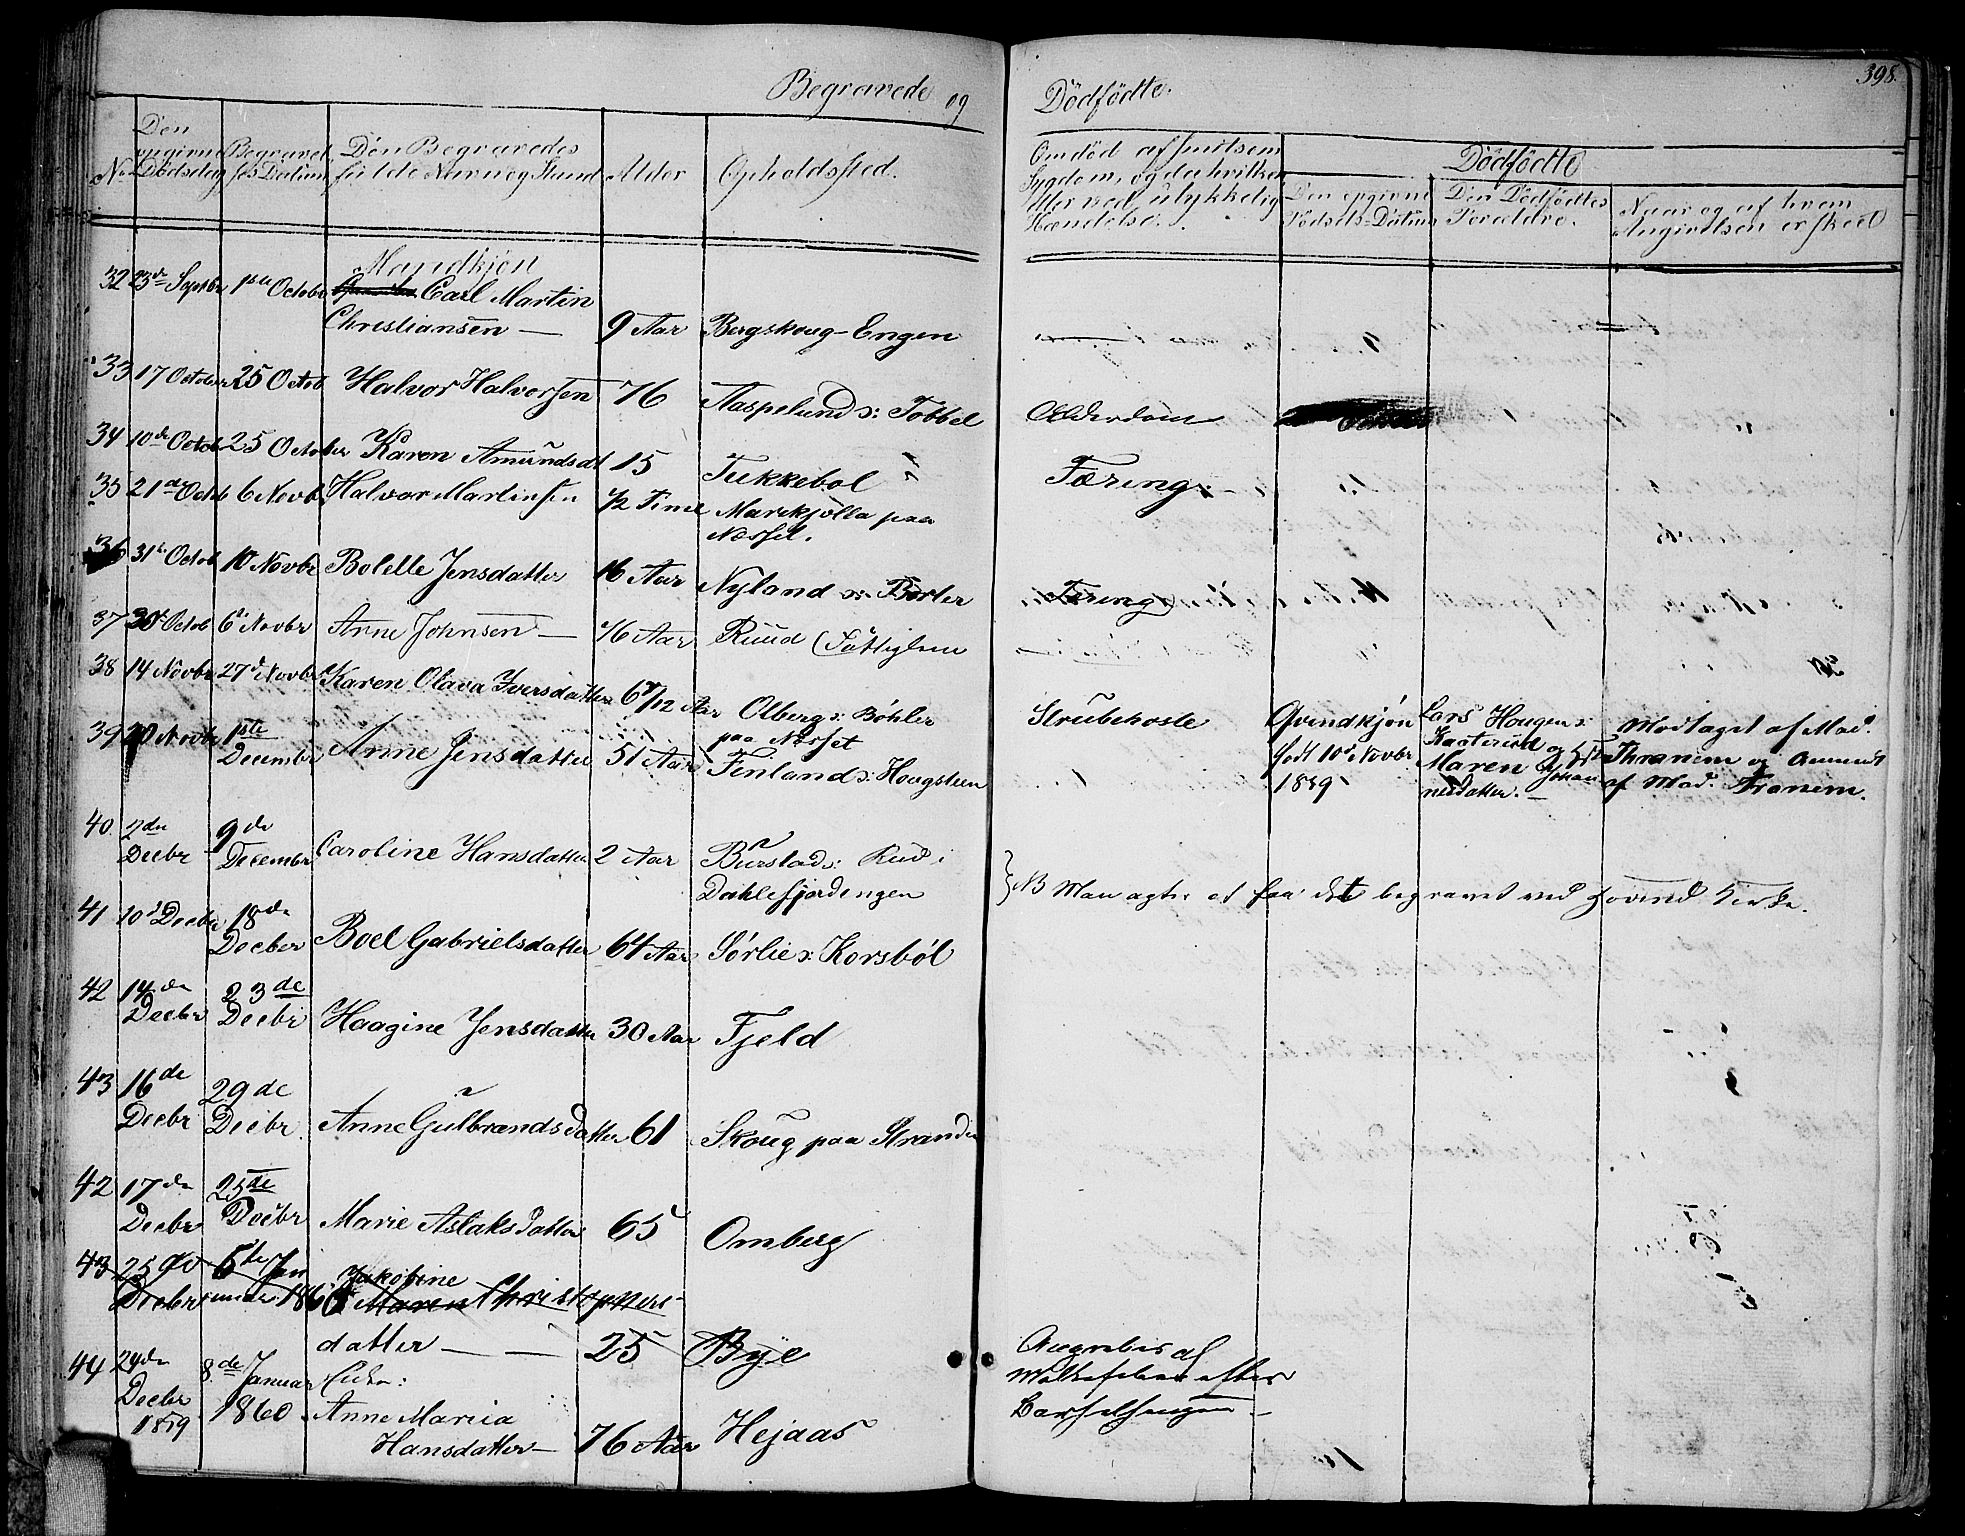 Begravede og Dödfödte.
398.
No
Den opgivne Dødsdag
Begravelses Datum
Den Begravedes fulde Navn og Stand
Alder
Opholdssted.
Omdöd af smitsom
Sygdom, og da hvilken
eller ved ulykkelig
Hændelse.
Dödfödte
Den opgivne Födsels-Datum
Den Dödfödtes Forældre.
Naar og af hvem Angivelsen er skeed
Mandkjön
32 23de Septbr 1ste Octobr Carl Martin
Christiansen — 9 Aar Bergskoug-Engen
33 17 October 25 Octob Halvor Halvorsen 76 Aaspelund s: Tobbel Alderdom
34 10de Octob 25 October Karen Amundsdt 15 Tukkebol Tæring
35 21de Octb 6 Novb Halvor Martinsen 1/2 Time Marekjölla paa
Næsset.
36 31te Octob 10 Novbr Bolelle Jensdatter 16 Aar Nyland s: Börter Tæring
37 30te Octob 6 Novbr Anne Johnsen — 76 Aar Ruud (Fattiglem
38 14 Novbr 27de Novbr Karen Olava Iversdatter 6 7/12 Aar Olberg s: Böhler
paa Næsset Strubehoste
39 20 Novbr 1ste
December Anne Jensdatter 51 Aar Finland s: Hougsteen
Qvindkjön
födt 10de Novbr
1859
Lars Hougen s:
Kasterud og
Maren Johan-
nesdatter. —
Modtaget af Mad.
Thranem og Anmeldt
af Mad. Tranem.
40. 2den
Decbr 9de
Decembr Caroline Hansdatter 2 Aar Burstad s: Rud i
Dahlefjerdingen
NB Man agter at faa det begravet ved Hovind Kirke.
41 10de Decbr 18de
Decber Boel Gabrielsdatter 64 Aar Sörlie s: Korsböl
42 14de
Decbr 23de
Decbr Haagine Jensdatter 30 Aar Fjeld
43 16de
Decbr 29de
Decbr. Anne Gulbrandsdatter 61 Skoug paa Stranden
42 17de
Decbr 25de
Decbr Marie Aslaksdatter 65 Omberg
43 25de
Decbr 5te Jan
1860 Jakobine
Maren Christophers-
datter — — 25 Bye
44 24de
Decbr
1859 8de Januar
1860 Enke:
Anne Maria
Hansdatter — 76 Aar Hejaas
af
efter
Barselsengen. —